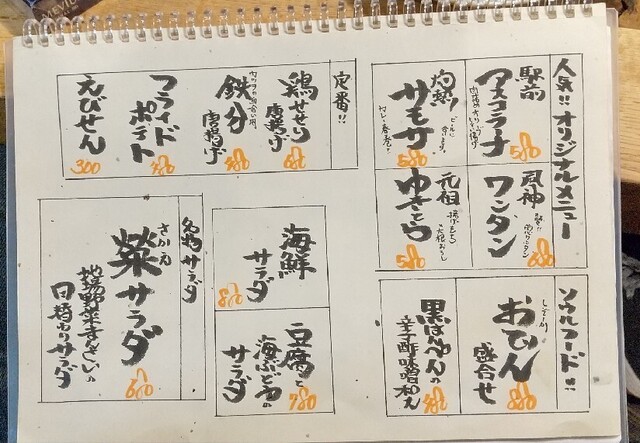 人気!! オリジナルメニュー
駅前
アメコラーナ
580
灼熱!
サモサ
580
風神
ワンタン
元祖
ゆきとら
580
ソウルフード!!
おでん
盛合せ
880
黒はんぺんの
辛子酢味噌和え
480
定番!!
鶏せせり
唐揚げ
680
鉄分
唐揚げ
フライド
ポテト
えびせん
300
海鮮
サラダ
880
豆腐と
海ぶどうの
サラダ
780
名物サラダ
さかえ
栄サラダ
地場野菜まんさいの
日替わりサラダ